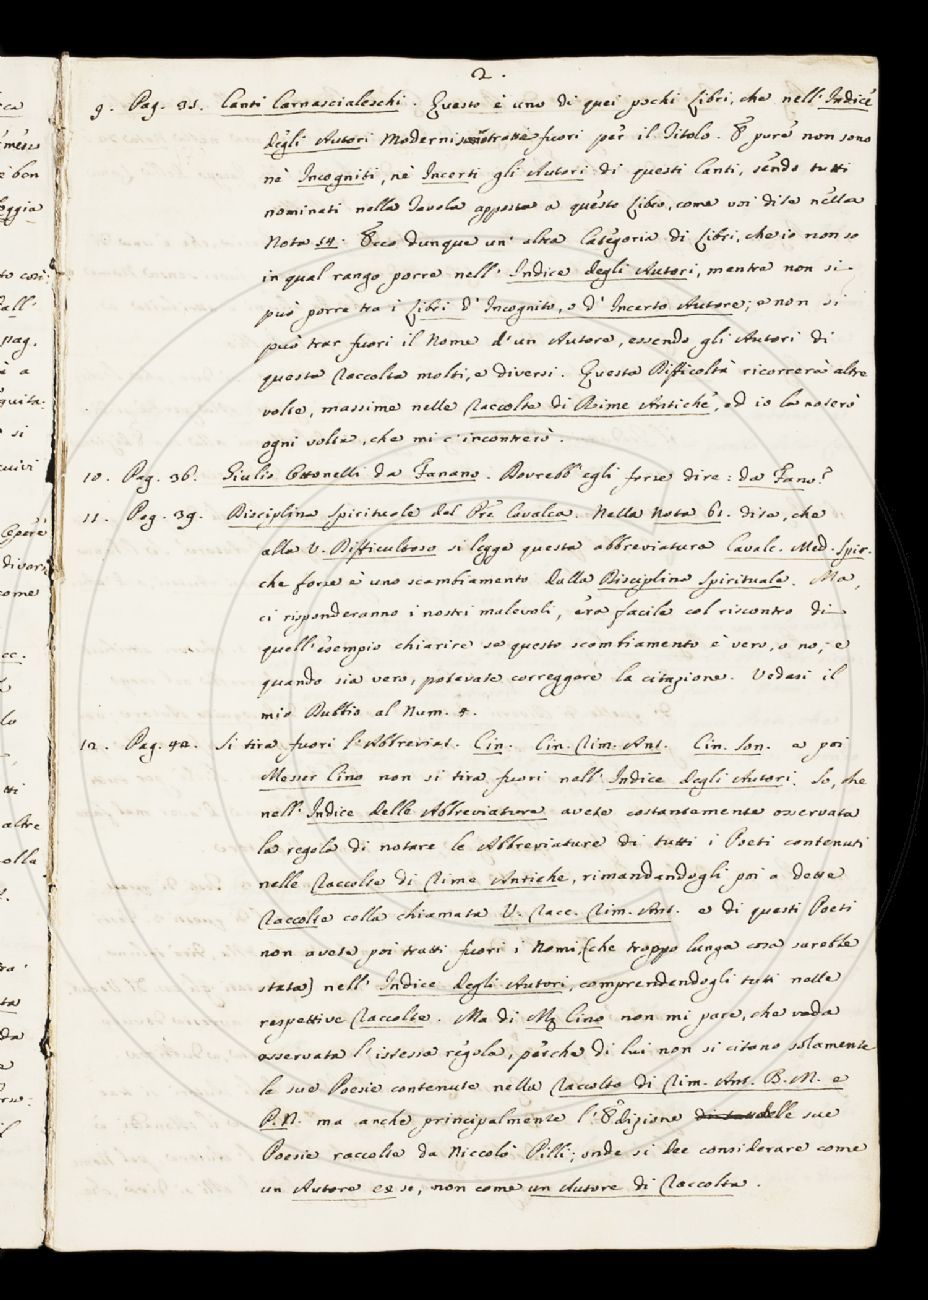 2.
9. Pag. 35. Canti Carnascialeschi. Questo è uno di quei pochi Libri, che nell'Indice
degli Autori Moderni tratte fuori per il Titolo. E pure non sono
nè Incogniti, nè Incerti gli Autori di questi Canti, sendo tutti
nominati nella Tavola apposta a questo Libro, come voi dite nella
Nota 54. Ecco dunque un'altra Categoria di Libri, che io non so
in qual rango porre nell'Indice degli Autori, mentre non si
può porre tra i Libri d'Incognito, o d'Incerto Autore; e non si
può trar fuori il Nome d'un Autore, essendo gli Autori di
questa Raccolta molti, e diversi. Questa Difficoltà ricorrerà altre
volte, massime nelle Raccolte di Rime Antiche, ed io la noterò
ogni volta, che mi c'incontrerò.
10. Pag. 36. Giulio Ottonelli da Fanano. Dovrebb'egli forse dire: da Fano?
11. Pag. 39. Disciplina Spirituale del Pre Cavalca. Nella Nota 61. dite, che
alla V. Difficultoso si legge questa abbreviatura Cavalc. Med. Spir.
che forse è uno scambiamento dalla Disciplina Spirituale. Ma,
ci risponderanno i nostri malevoli, era facile col riscontro di
quell'esempio chiarire se questo scambiamento è vero, o no; e
quando sia vero, potevate correggere la citazione. Vedasi il
mio Dubbio al Num. 4.
12. Pag. 42. Si tira fuori l'Abbreviat. Cin. Cin. Rim. Ant. Cin. Son. e poi
Messer Cino non si tira fuori nell'Indice degli Autori. So, che
nell'Indice delle Abbreviature avete costantemente osservata
la regola di notare le Abbreviature di tutti i Poeti contenuti
nelle Raccolte di Rime Antiche, rimandandogli poi a dette
Raccolte colla chiamata V. Racc. Rim. Ant. e di questi Poeti
non avete poi tratti fuori i Nomi (che troppo lunga cosa sarebbe
stata) nell'Indice degli Autori, comprendendogli tutti nelle
respettive Raccolte. Ma di Mr Cino non mi pare, che vada
osservata l'istessa regola, perche di lui non si citano solamente
le sue Poesie contenute nella Raccolta di Rim. Ant. B. M. e
P. N. ma anche principalmente l'Edizione delle sue
Poesie raccolte da Niccolò Pilli; onde si dee considerare come
un Autore da se, non come un Autore di Raccolta.